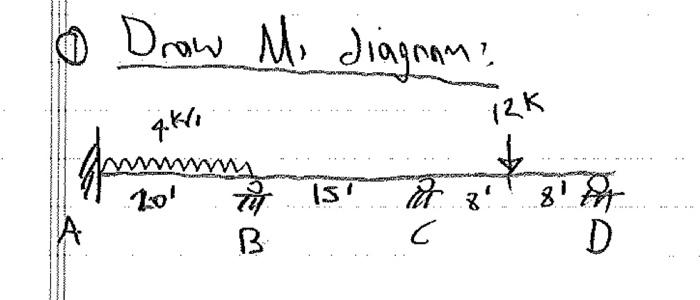 ① Draw M, diagram:
12K
4 k/'
20' 15' 8' 8'
A B C D